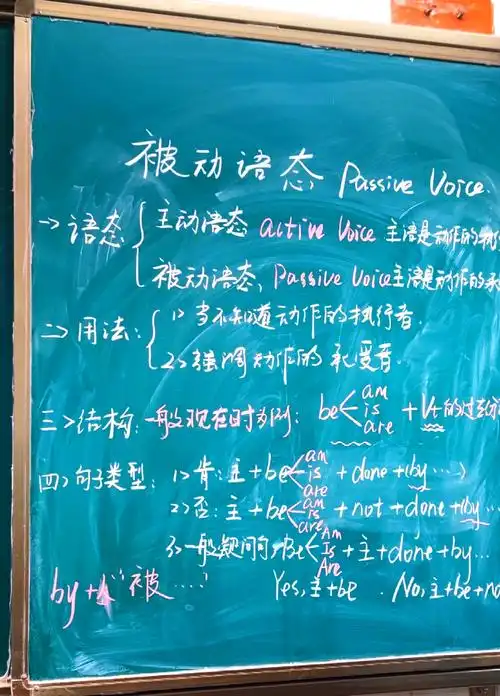 被动语态 Passive Voice.
一> 语态 { 主动语态 active Voice 主语是动作的执
被动语态, Passive Voice 主语是动作的承
二> 用法: { 1> 当不知道动作的执行者.
2> 强调动作的承受者.
三> 结构: 一般现在时为例: be < am is are + Vt的过去
四> 句子类型: 1> 肯: 主 + be < am is are + done + (by ...)
2> 否: 主 + be < am is are + not + done + (by ...
3> 一般疑问句: Be < Am Is Are + 主 + done + by...
Yes, 主 + be . No, 主 + be + no
by + "被 ...."